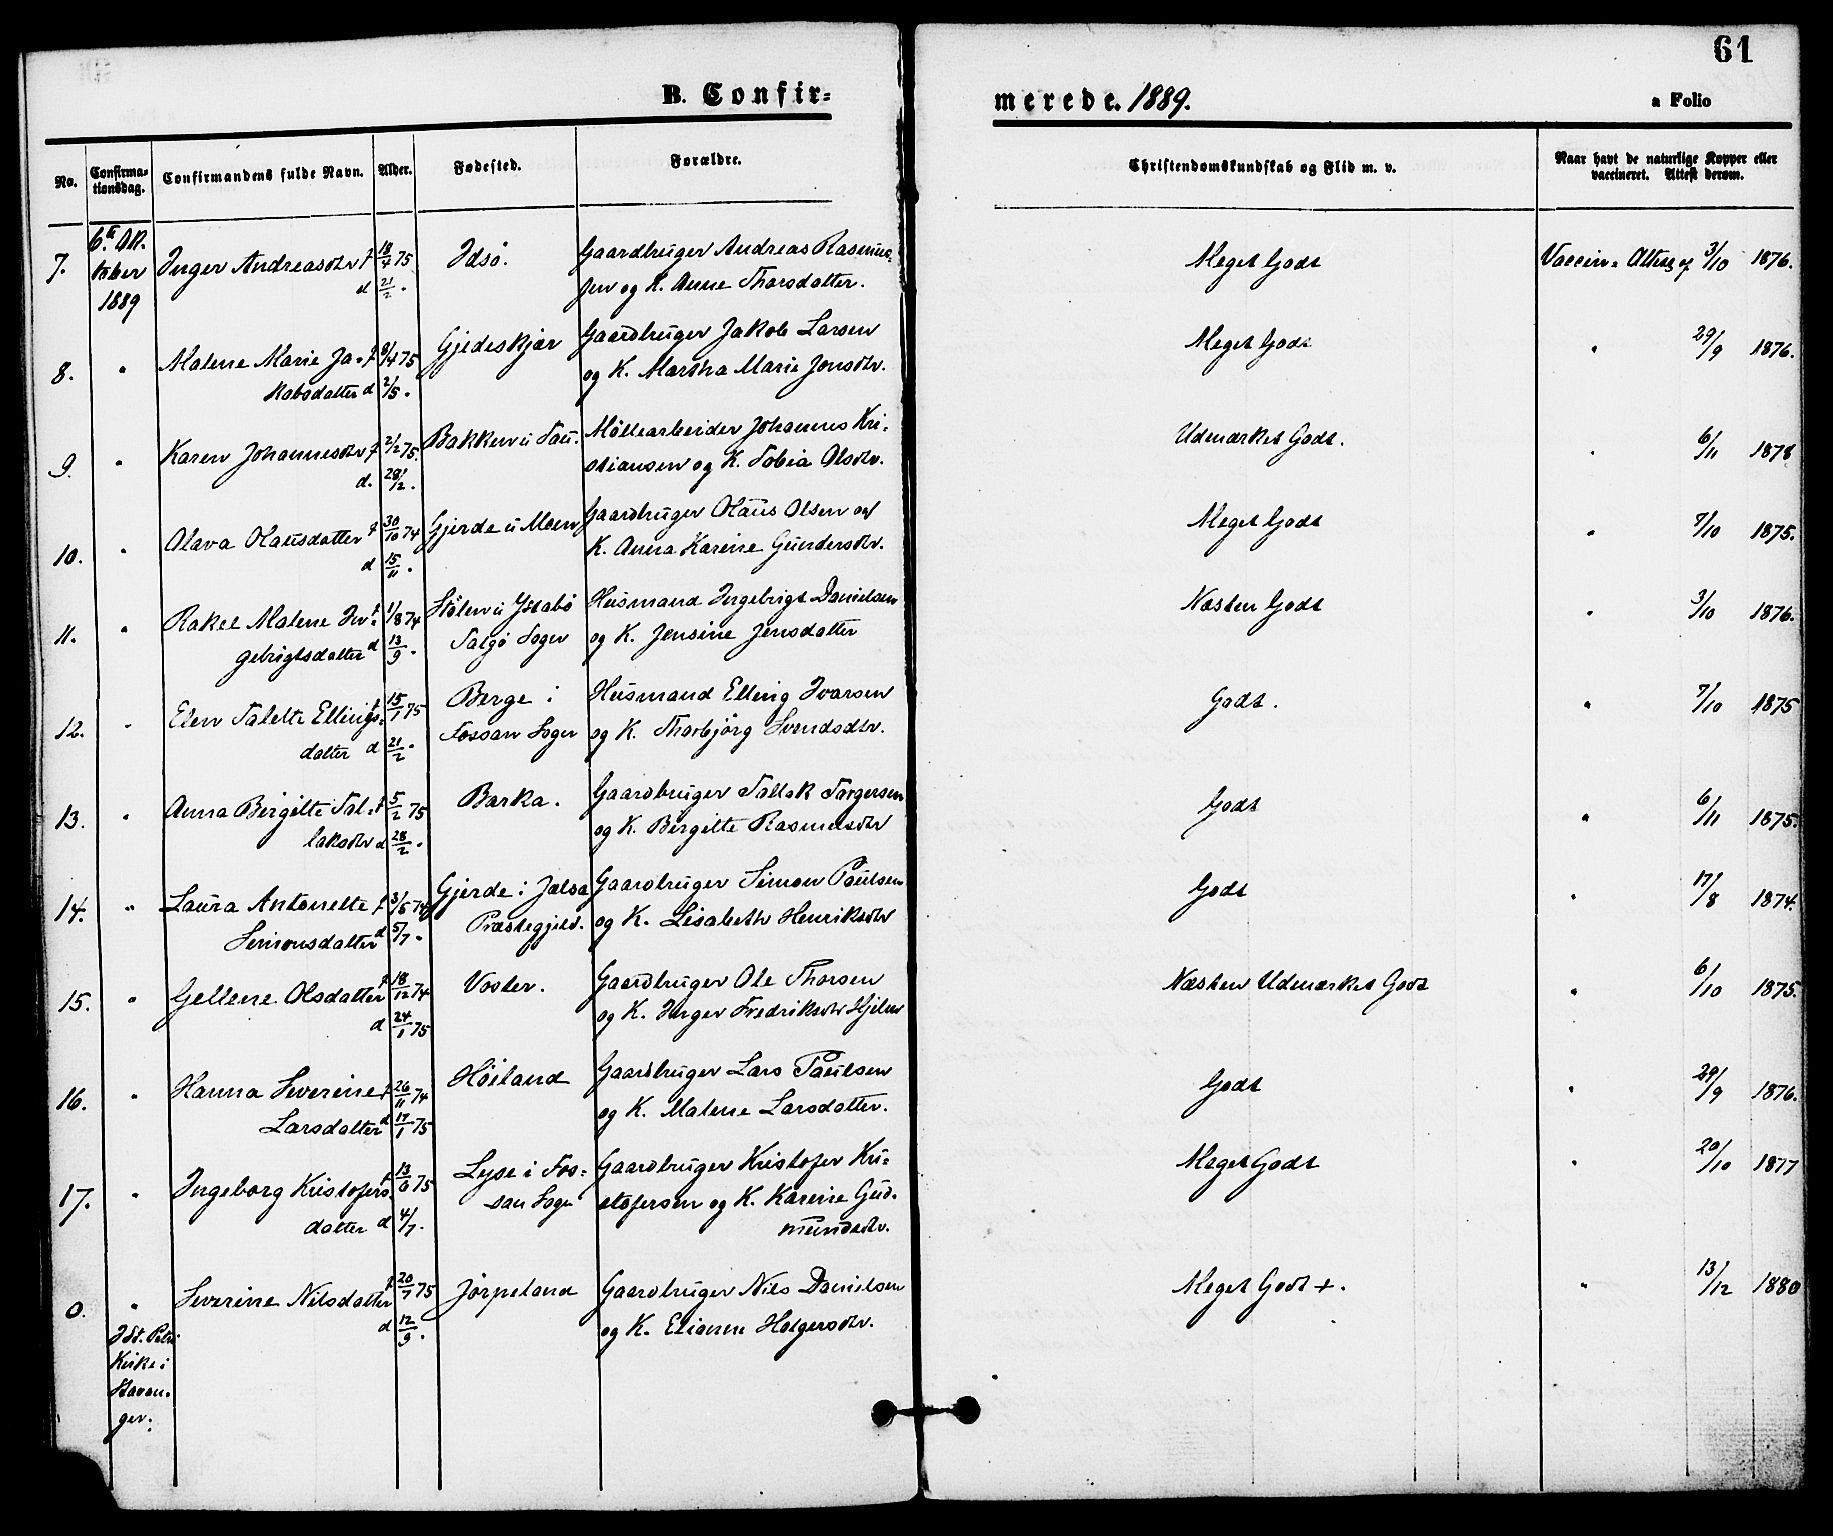 61
B. Confir-
merede. 1889.
a Folio
No.
Confirma-
tionsdag.
Confirmandens fulde Navn.
Alder.
Fødested.
Forældre.
Christendomskundskab og Flid m. v.
Naar havt de naturlige Kopper eller
vaccineret. Attest derom.
7. 6te Ok- Inger Andreasdtr f 18/4 75 Idsø. Gaardbruger Andreas Rasmus- Meget Godt Vaccin. Attest af 3/10 1876.
tober d 21/2 . sen og K. Anne Thorsdatter.
1889
8. " Malene Marie Ja- f 8/4 75 Gjedeskjær Gaardbruger Jakob Larsen Meget Godt " 29/9 1876.
kobsdatter d 2/5 . og K. Martha Marie Jonsdtr.
9. " Karen Johannesdtr f 2/2 75. Bakken i Tau. Møllearbeider Johannes Kri- Udmærket Godt. " 6/11 1878
d. 28/2 . stiansen og K. Tobia Olsdtr.
10. " Olava Olausdatter f 30/10 74 Gjerde u Moen Gaardbruger Olaus Olsen og Meget Godt " 7/10 1875.
d 15/11 . K. Anna Karine Gundersdtr.
11. " Rakel Malene In- f 1/8 74 Stølen u Ystabø Husmand Ingebrigt Danielsen Næsten Godt " 3/10 1876.
gebrigtsdatter d 13/9 . Talgø Sogn og K. Jensine Jensdatter
12. " Elen Talette Ellings- f 15/1 75 Berge i Husmand Elling Ivarsen Godt. " 7/10 1875
datter d 21/2 . Fossan Sogn og K. Thorbjørg Svendsdtr.
13. " Anna Bergitte Tal- f 5/2 75 Barka. Gaardbruger Tallak Torgersen Godt " 6/11 1875.
laksdtr d 28/2 . og K. Bergitte Rasmusdtr
14. " Laura Antonette f 3/5 74 Gjerde i Jelsa Gaardbruger Simon Paulsen Godt " 17/8 1874.
Simonsdatter d 5/7 . Præstegjeld. og K. Lisabeth Henriksdtr
15. " Gellene Olsdatter f 18/12 74 Voster. Gaardbruger Ole Thorsen Næsten Udmærket Godt " 6/10 1875.
d 24/1 75 og K. Inger Fredriksdtr Hjelm
16. " Hanna Severine f 26/11 74 Høiland Gaardbruger Lars Paulsen Godt " 29/9 1876.
Larsdatter d 17/1 75 og K. Malene Larsdatter.
17. " Ingeborg Kristofers- f 13/6 75 Lyse i Fos- Gaardbruger Kristofer Kri- Meget Godt " 20/10 1877
datter d 4/7 . san Sogn stofersen og K. Karine Gud-
mundsdtr.
0. " Severine Nilsdatter f 20/7 75 Jørpeland Gaardbruger Nils Danielsen Meget Godt +. " 13/12 1880
d 12/9 . og K. Elianne Holgersdtr.
I St. Petri
Kirke i
Stavan-
ger.